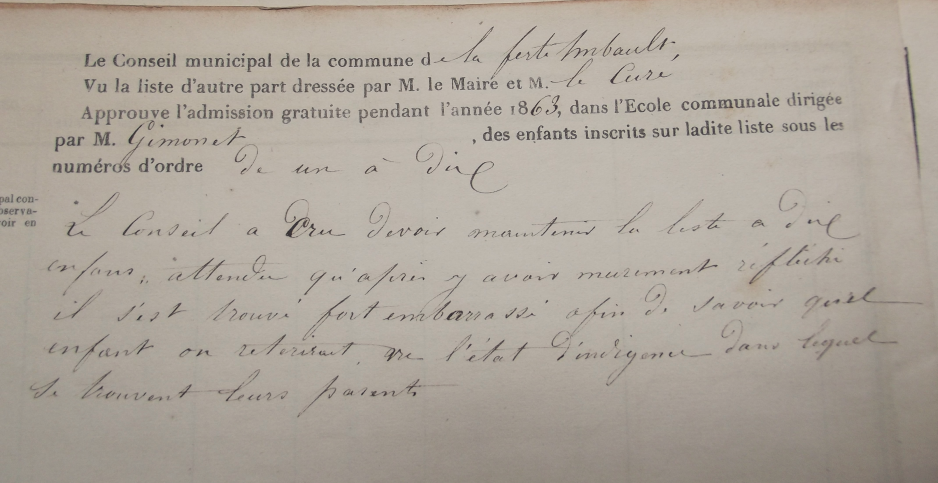 Le Conseil municipal de la commune de la ferté Imbault,
Vu la liste d'autre part dressée par M. le Maire et M. le Curé
Approuve l'admission gratuite pendant l'année 1863, dans l'Ecole communale dirigée
par M. Gimonet, des enfants inscrits sur ladite liste sous les
numéros d'ordre de un à dix
pal con-
bserva-
oir en
Le Conseil a Cru devoir maintenir la liste a dix
enfans, attendu qu'après y avoir murement réfléchi
il s'est trouvé fort embarrassé afin de savoir quel
enfant on retirerait, vu l'état d'indigence dans lequel
se trouvent leurs parents